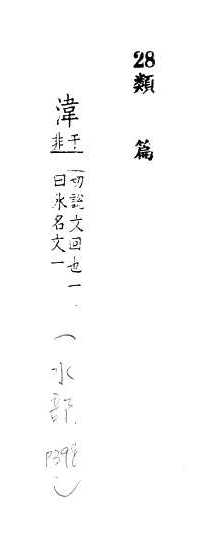 28類篇
湋
于非
切說文回也一
曰水名文一
(水部.